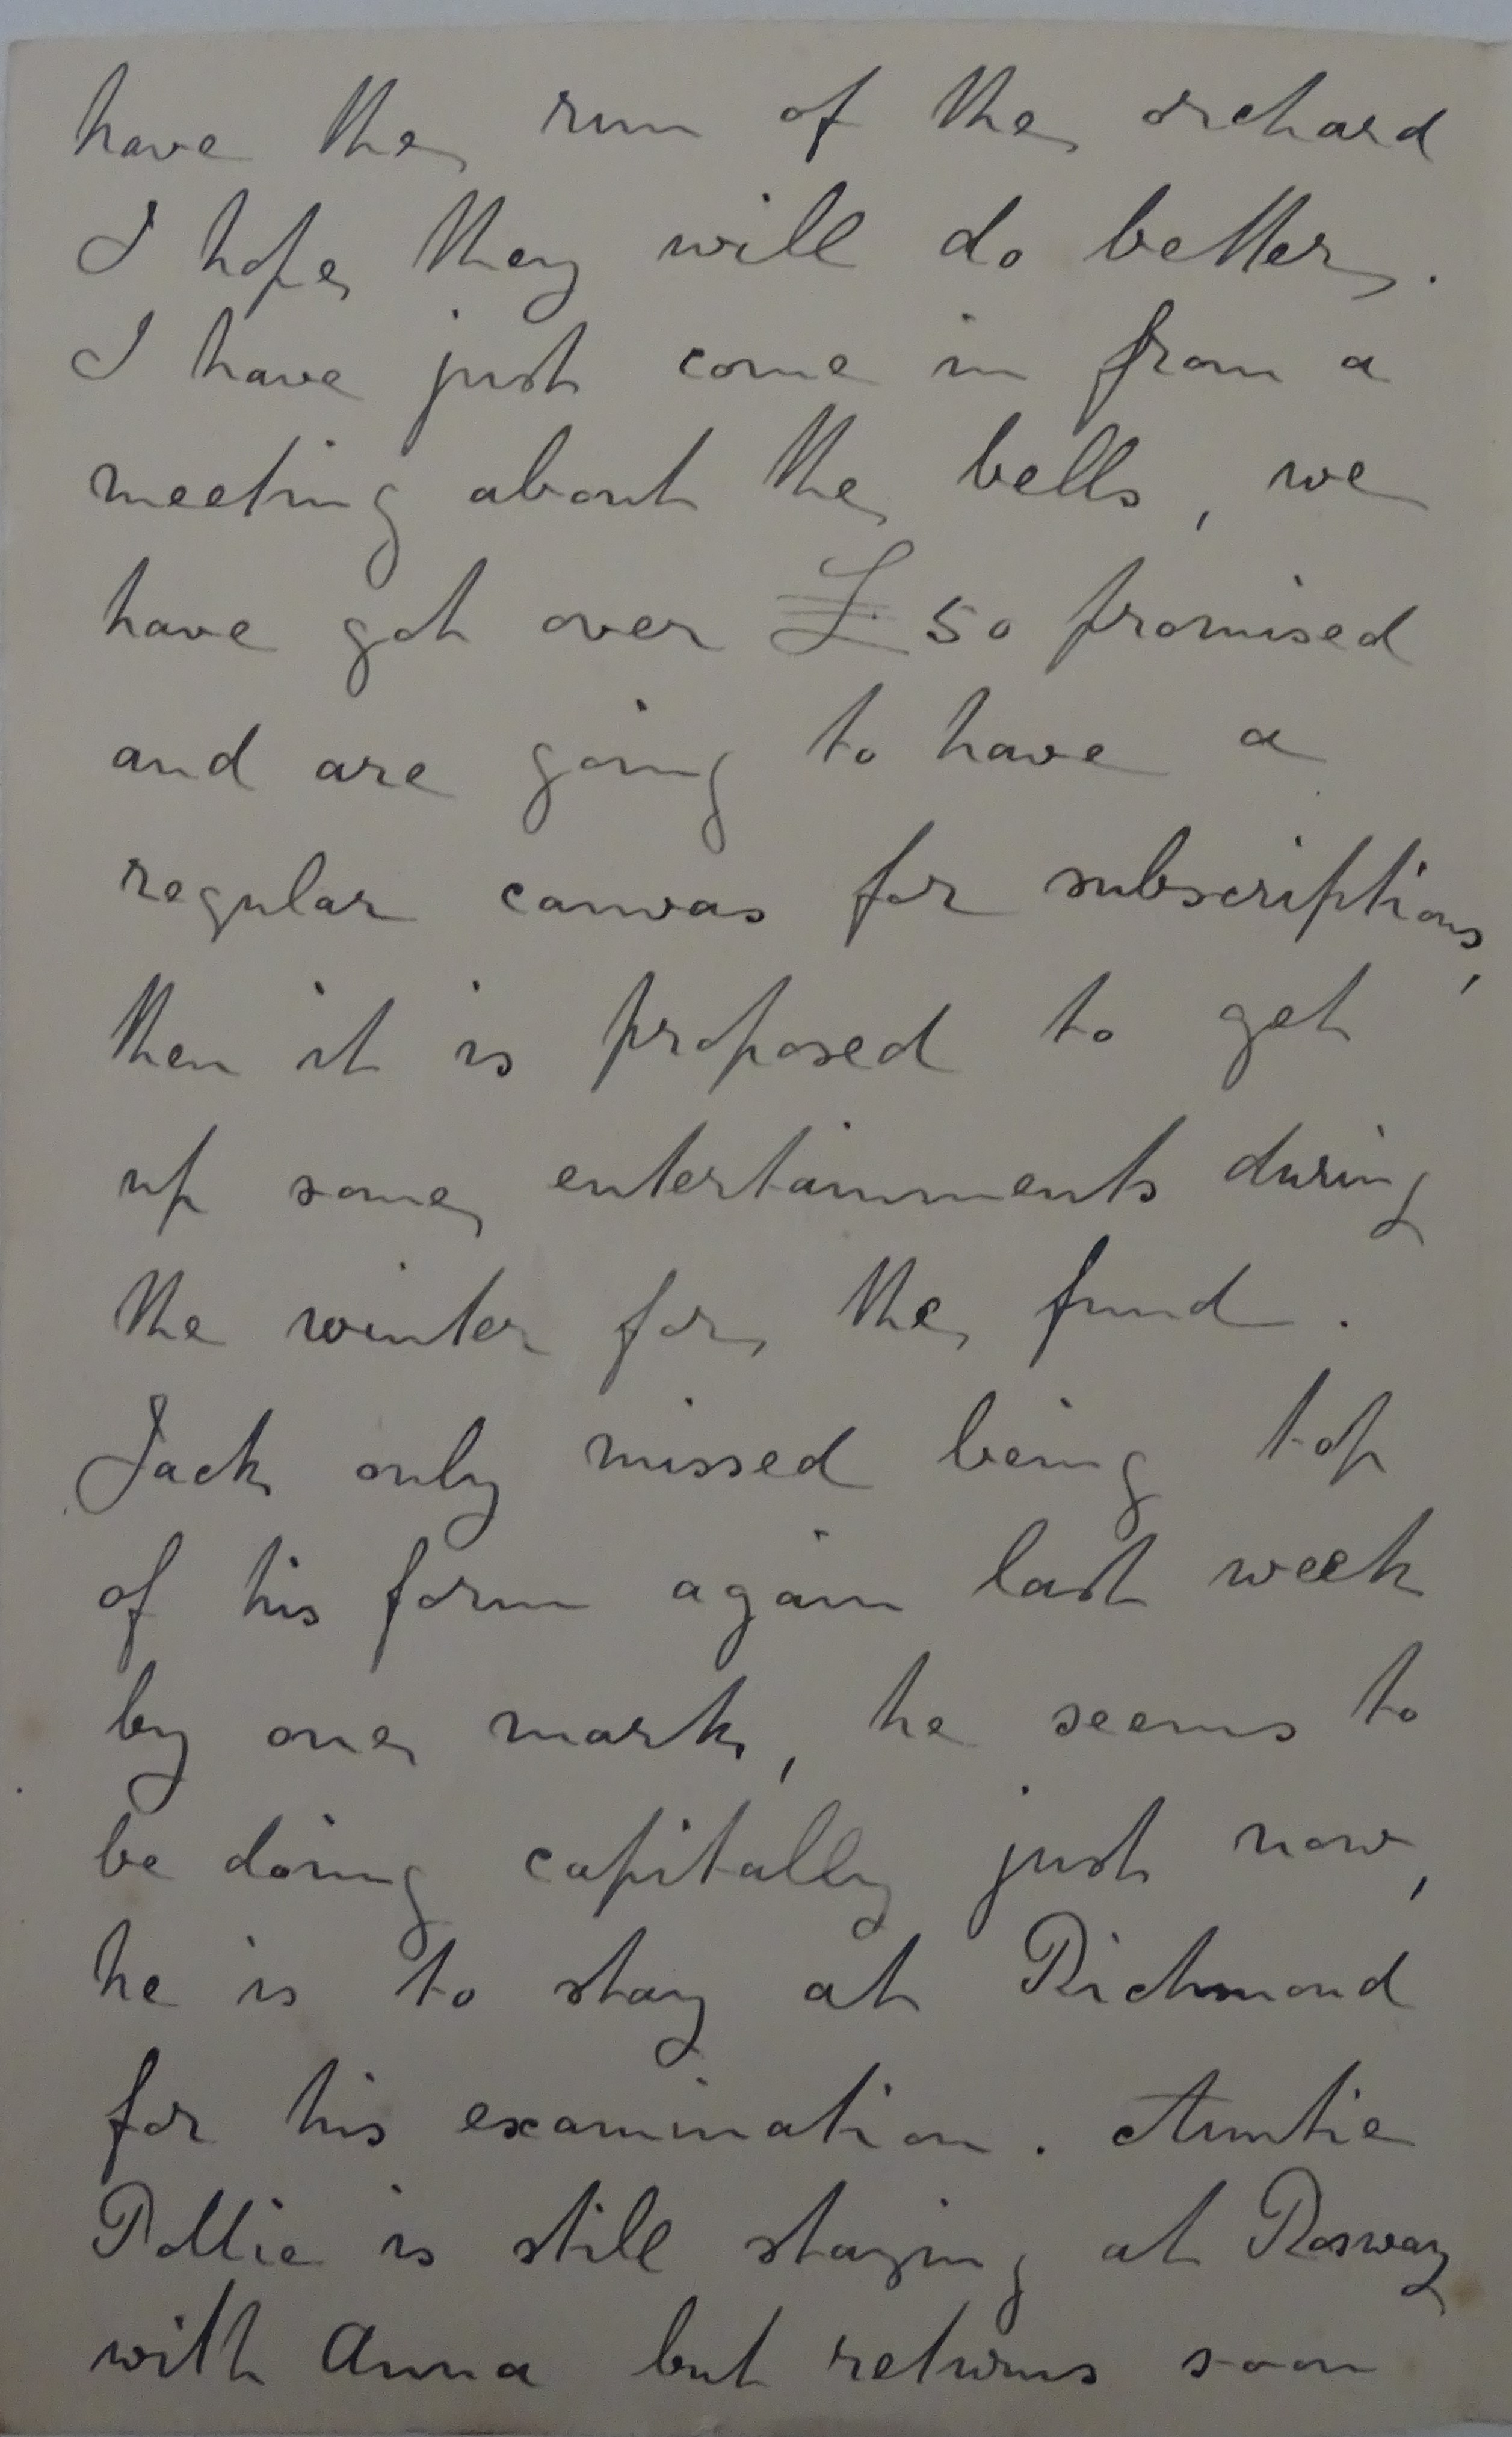 have the run of the orchard
I hope they will do better.
I have just come in from a
meeting about the bells, we
have got over £50 promised
and are going to have a
regular canvas for subscriptions,
then it is proposed to get
up some entertainments during
the winter for the fund.
Jack only missed being top
of his form again last week
by one mark, he seems to
be doing capitally just now,
he is to stay at Richmond
for his examination. Auntie
Pollie is still staying at Rosway
with Anna but returns soon